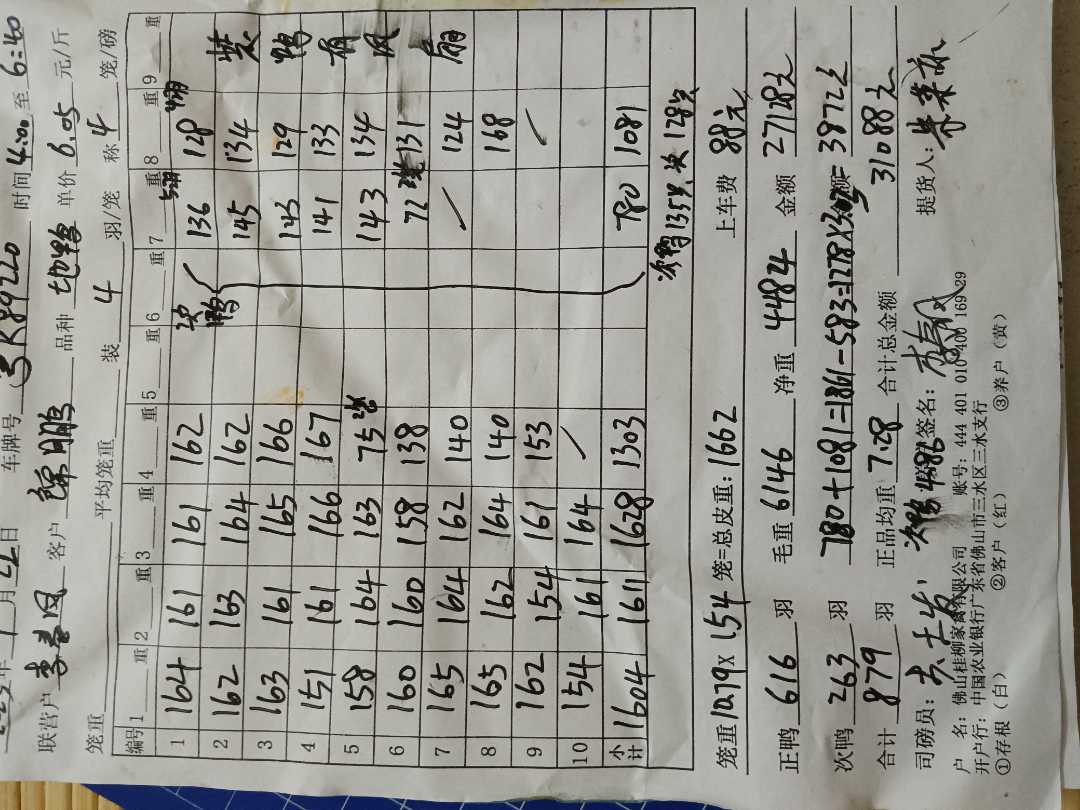 年1月22日 车牌号 3K89220 时间 4:00 至 6:40
联营户 李春凤 客户 锦鹏 品种 地鸭 单价 6.05 元/斤
笼重 平均笼重 装 4 羽/笼 称 4 笼/磅
编号 1 重 2 重 3 重 4 重 5 重 6 重 7 重 8 重 9 重
1 164 161 161 162 次 136 5羽 128 4羽
2 162 163 164 162 鸭 145 134 装
3 163 161 165 166 143 129 鸭
4 151 161 166 167 141 133 有
5 158 164 163 75 2笼 143 134 风
6 160 160 158 138 72 2笼 131
7 165 164 162 140 / 124 扇
8 165 162 164 140 168
9 162 154 161 153 /
10 154 161 164 /
小计 1604 1611 1628 1303 780 1081
次鸭135只 次128只
笼重 10.79 X 154 笼=总皮重: 1662 上车费 88元
正鸭 616 羽 毛重 6146 净重 4484 金额 27128元
次鸭 263 羽 780+1081=1861-583=1278 = 3872元
合计 879 羽 正品均重 7.28 合计总金额 31088元
司磅员: 次鸭4.86 签名: 提货人:
户 名: 佛山桂柳家禽有限公司 账号: 444 401 010 400 169 29
开户行: 中国农业银行广东省佛山市三水区三水支行
①存根（白） ②客户（红） ③养户（黄）